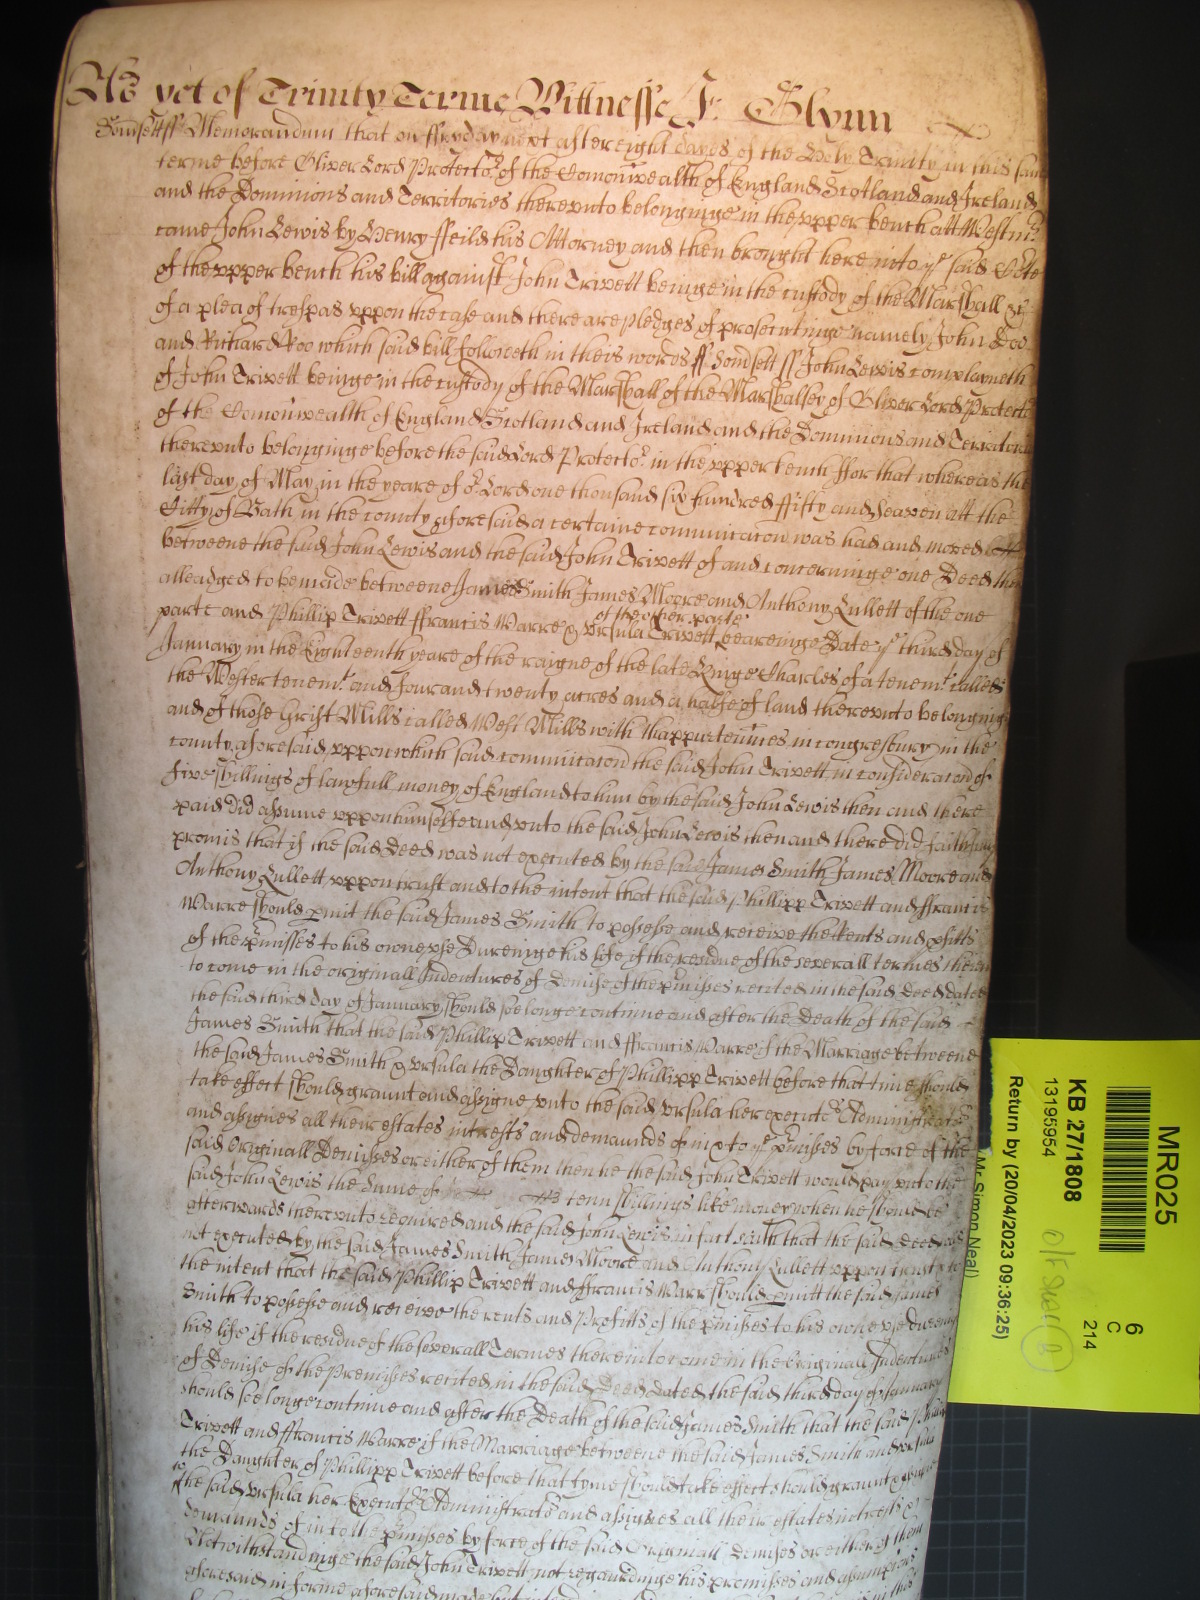 As yet of Trinity Terme Wittnesse J: Glynn
Somsett ss Memorandum that on ffryday next after eight dayes of the Holy Trinity in this same
terme before Oliver Lord Protector of the Comonwealth of England Scotland and Ireland
and the Dominions and Territories thereunto belonginge in the upper bench att Westmr
came John Lewis by Henry ffeild his Attorney and then brought here into ye said Cote
of the upper bench his bill against John Trivett beinge in the custody of the Marshall &c
of a plea of trespas uppon the case and there are pledges of prosecutinge namely John Doo
and Richard Roo which said bill followeth in theis words ss Somsett ss John Lewis complayneth
of John Trivett beinge in the custody of the Marshall of the Marshalsey of Oliver Lord Protector
of the Comonwealth of England Scotland and Ireland and the Dominions and Territories
thereunto belonginge before the said Lord Protector in the upper bench ffor that whereas the
last day of May in the yeare of or Lord one thousand six hundred ffifty and seaven att the
Citty of Bath in the county aforesaid a certaine communicacon was had and moved
betweene the said John Lewis and the said John Trivett of and concerninge one Deed then
alleadged to be made betweene James Smith James Moore and Anthony Lullett of the one
parte and Phillip Trivett ffrancis Warre & Ursula Trivett of the other parte beareinge Date ye third day of
January in the Eighteenth yeare of the raigne of the late Kinge Charles of a tenemt called
the Wester tenemt and four and twenty acres and a halfe of land thereunto belonginge
and of those Grist Mills called West Mills with thappurtennces in Congresbury in the
county aforesaid uppon which said communicacon the said John Trivett in consideracon of
five shillings of lawfull money of England to him by the said John Lewis then and there
paid did assume uppon himselfe and unto the said John Lewis then and there did faithfully
promis that if the said Deed was not executed by the said James Smith James Moore and
Anthony Lullett uppon trust and to the intent that the said Phillipp Trivett and ffrancis
Warre should pmit the said James Smith to possesse and receive the Rents and pfitts
of the pmisses to his owne use Dureinge his life if the residue of the severall termes then
to come in the originall Indentures of Demise of the pmisses recited in the said Deed dated
the said third day of January should soe longe continue and after the Death of the said
James Smith that the said Phillip Trivett and ffrancis Warre if the Marriage betweene
the said James Smith & Ursula the Daughter of Phillipp Trivett before that time should
take effect should graunt and assigne unto the said Ursula her executrs Administratrs
and assignes all their estates intrests and demaunds of in & to ye pmisses by force of the
said Originall Demisses or either of them then he the said John Trivett would pay unto the
said John Lewis the Sume of tenn shillings like money when he should be
afterwards thereunto required and the said John Lewis in fact saith that the said Deed was
not executed by the said James Smith James Moore and Anthony Lullett uppon trust & to
the intent that the said Phillip Trivett and ffrancis Warr should pmitt the said James
Smith to possesse and receive the rents and Profitts of the pmisses to his owne use dureing
his life if the residue of the severall Termes therein to come in the Originall Indentures
of Demise of the Premisses recited in the said Deed Dated the said third day of January
should soe longe continue and after the Death of the said James Smith that the said Phillip
Trivett and ffrancis Warre if the Marriage betweene the said James Smith and Ursula
the Daughter of Phillipp Trivett before that tyme should take effect should graunt & assigne
to the said Ursula her Executrs Administratrs and assignes all their estates intrests &
demaunds of in to the pmisses by force of the said Originall Demises or either of them
Notwithstandinge the said John Trivett not regardinge his promisses and assumptions
aforesaid in forme aforesaid made but
MR025
6
C
214
KB 27/1808
13195954
Return by (20/04/2023 09:36:25)
(Mr Simon Neal)